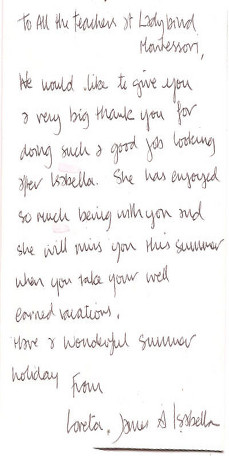 To All the teachers at Ladybird
Montessori,
We would like to give you
a very big thank you for
doing such a good job looking
after Isabella. She has enjoyed
so much being with you and
she will miss you this summer
when you take your well
earned vacations.
Have a wonderful summer
holiday From
Loreta, James & Isabella